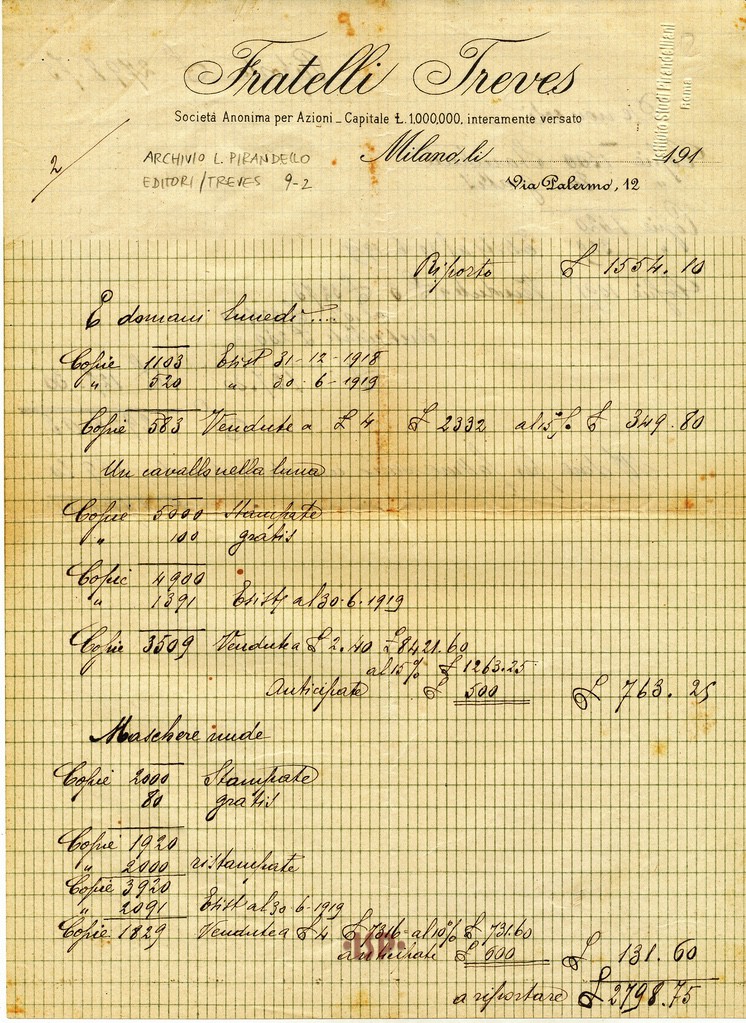 Fratelli Treves
Società Anonima per Azioni _ Capitale Ł. 1.000,000, interamente versato
Istituto Studi Pirandelliani
Roma
2
ARCHIVIO L. PIRANDELLO
EDITORI/TREVES 9-2
Milano, li 191
Via Palermo, 12
Riporto £ 1554.10
E domani lunedì ....
Copie 1103 Esist 31-12-1918
" 520 " 30-6-1919
Copie 583 Vendute a £ 4 £ 2332 al 15% £ 349.80
Un cavallo nella luna
Copie 5000 Stampate
" 100 gratis
Copie 4900
" 1391 Esist al 30-6.1919
Copie 3509 Vendute a £ 2.40 £ 8421.60
al 15% £ 1263.25
Anticipate £ 500 £ 763.25
Maschere nude
Copie 2000 Stampate
80 gratis
Copie 1920
" 2000 ristampate
Copie 3920
" 2091 Esist al 30-6-1919
Copie 1829 Vendute a £ 4 £ 7316- al 10% £ 731.60
anticipate £ 600 £ 131.60
ISP
a riportare £ 2798.75